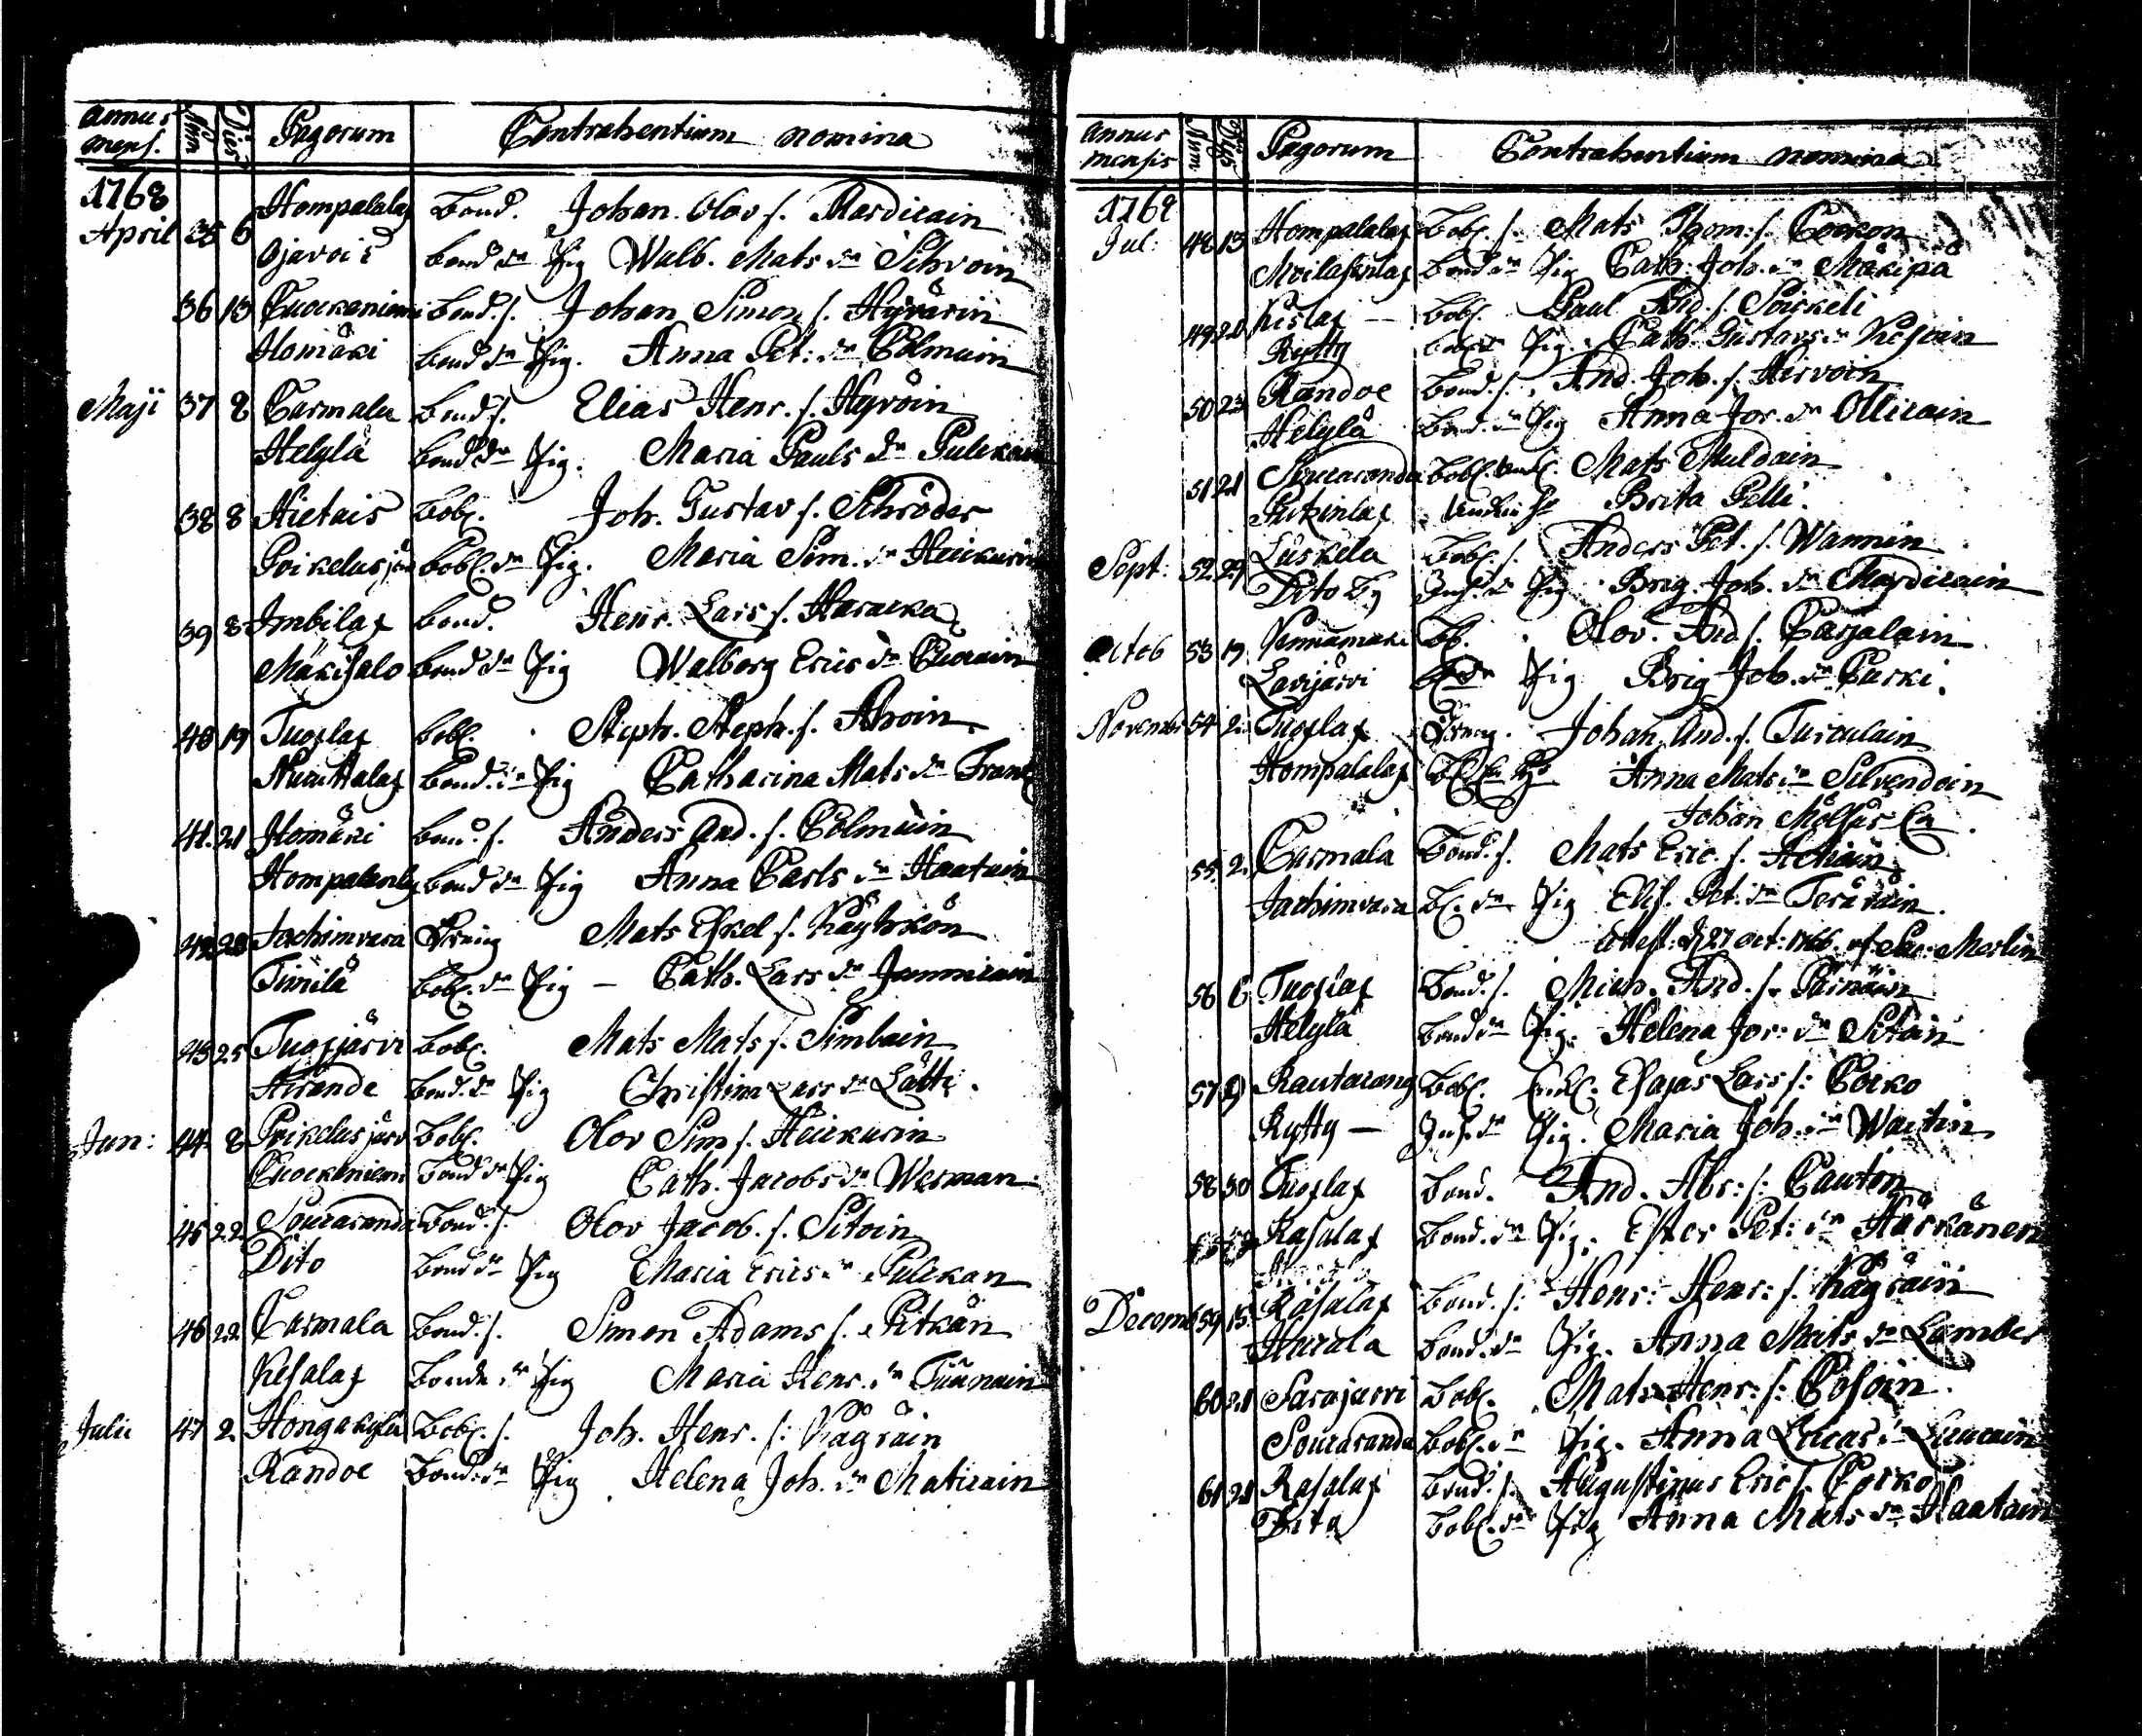 annus mens. Num Dies Pagorum Contrahentium nomina
1768
April 35 6 Hompalalax Bond. Johan Olov s. Mardicain
Ojavois bond dr Pig Walb. Mats dr Sihvoin
36 13 Cuockaniemi Bond. s. Johan Simon s. Hyvärin
Ilomäki bond dr Pig. Anna Pet: dr Colmain
Maji 37 8 Carmala bond. s. Elias Henr. s. Hyvöin
Helylä bond dr Pig. Maria Pauls dr Pulckan
38 8 Hietais Bobl. Joh. Gustav s. Schröder
Poikelusjär Bobl. dr Pig. Maria Sim. dr Heickurin
39 8 Imbilax bond. Henr. Lars s. Haracka
Mäkisalo bond dr Pig Walborg Erics dr
40 19 Tuoslax bobl. Steph. Steph. s. Ahoin
bond. dr Pig Catharina Mats dr Frantz
41. 21 Ilomäki bond. s. Anders And. s. Colmain
Hompalax bond dr Pig Anna Carls dr Haatain
42 22 Jachimvara Dreng Mats Eskel s. Käyhkön
Tiurila bobl. dr Pig – Cath. Lars dr
43 25 Tuosjärvi bobl. Mats Mats s. Simlain
Hirande bond. dr Pig Christin Lars dr Lätti.
Jun: 44 8 Poikelusjärv Bobl. Olov Sim s. Heickurin
Cuockaniem bond dr Pig Cath. Jacobs dr Werman
45 22 Souraranda bond. s. Olov Jacob. s. Sitoin
Dito bond dr Pig Maria Erics dr Pulckan
46 22 Carmala bond. s. Simon Adams s. Pitkän
Kesalax bonde dr Pig Maria Henr. dr
Julii 47 2. Hongakylä Bobl. s. Joh. Henr. s: Kägräin
Randoe bond. dr Pig Helena Joh. dr Maticain
annus mensis Num Dies Pagorum Contrahentium nomina
1768
Jul: 48 13 Hompalalax Bobl. s. Mats Thom: s. Cockon
bond dr Pig Cath. Joh. dr Mäkipä
49 20 Kislax – bobl. Paul And. s. Poickeli
Rytty Pig. Cath. Gustavs dr
50 23 Randoe bond. s. And. Joh. s. Hirvoin
Helylä bond. dr Pig Anna Jor. dr Ollicain
51 21 Souraranda Bobl. Mats Muldain
Brita Pelli.
Sept: 52. 29 Läskelä Bobl. s. Anders Pet. s. Wannin
Dito By Inh. dr Pig Brig. Joh. dr Mardicain
Octob 53 19 Bb. Olov. And s. Carjalain
Lavijärvi dr Pig Brig Joh. dr Curki.
November 54 2. Tuoslax Dreng. Johan And. s. Turculain
Hompalalax Anna Mats dr Silvendoin
Johan
55. 2. Carmala Bond. s. Mats Eric. s.
Jachimvara Bl. dr Pig Elis. Pet. dr Teräväin.
Attest: d. 27 Oct: 1766. af Merlin
56 6 Tuoslax Bond. s. Mich. And. s. Pärnäin
Helylä bond dr Pig. Helena Jor: dr Sitain
57 9 Rautacang Bobl. Enkl. Esajas Lars s: Corko
Rytty – Inh. dr Pig. Maria Joh. dr Wartin
58 30 Tuoslax bond. And. Abr: s: Cauton
Kasalax bond. dr Pig. Ester Pet: dr Härkänen
Decemb 59 15. Räsalax bond. s: Henr: Henr: s. Kägräin
Harala bond. dr Pig. Anna Mats dr Lamber
60 21 Sarajarvi Bobl. Mats Henr: s: Cosoin
Souraranda Bobl. dr Pig. Anna Lucas dr Luucain
61 21 Kasalax bond. s. Augustinus Eric s. Corko
Dito Bobl. dr Pig Anna Mats dr Haatain